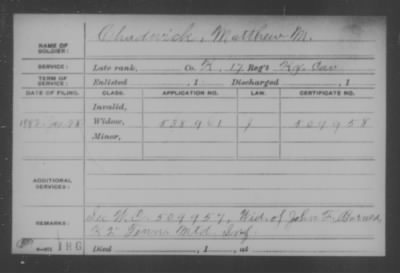 NAME OF SOLDIER: Chadwick, Matthew M.
SERVICE: Late rank, Co. K, 17 Reg't Ky. Cav
TERM OF SERVICE: Enlisted , 1 Discharged , 1
DATE OF FILING. CLASS. APPLICATION NO. LAW. CERTIFICATE NO.
Invalid,
Widow, 538 961 509 958
Minor,
ADDITIONAL SERVICES:
REMARKS: See W.C. 509957, Wid. of John F.
Tenn. Mtd. Inf.
Died , 1 , at